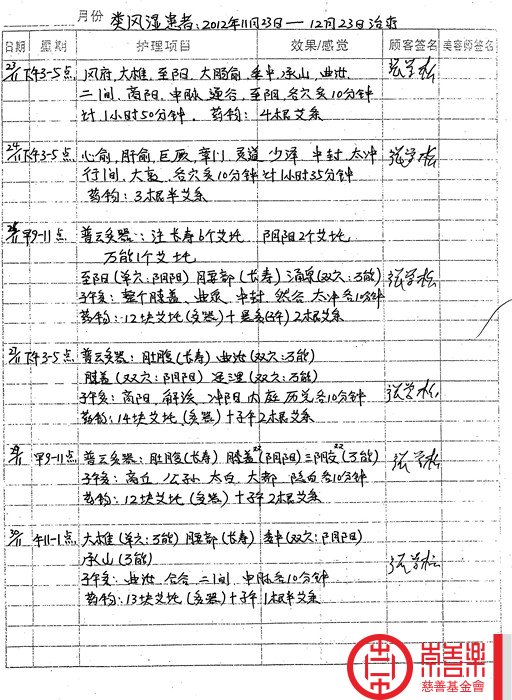 月份 类风湿患者:2012年11月23日—12月23日治疗
日期 星期 护理项目 效果/感觉 顾客签名 美容师签名
23/11 下午3-5点 风府、大椎、至阳、大肠俞、委中、承山、曲池
二间、商阳、申脉、通谷、至阳、各穴灸10分钟
计1小时50分钟、药物:4根艾条
24/11 下午3-5点 心俞、肝俞、巨阙、章门、灵道、少泽、中封、太冲
行间、大敦、各穴灸10分钟 计1小时35分钟
药物:3根半艾条
早9-11点 普云灸器:注长寿6个艾坨 阴阳2个艾坨
万能1个艾坨
至阳(单穴:阴阳) 腰部(长寿) 涌泉(双穴:万能)
子午灸:整个膝盖、曲泉、中封、然谷、太冲各10分钟
药物:12块艾坨(灸器)十 2根艾条
下午3-5点 普云灸器:肚腹(长寿) 曲池(双穴:万能)
膝盖(双穴:阴阳) 足三里(双穴:万能)
子午灸:商阳、解溪、冲阳 内庭 厉兑各10分钟
药物:14块艾坨(灸器)十子午2根艾条
早9-11点 普云灸器:肚腹(长寿) 膝盖(阴阳) 三阴交(万能)
子午灸:商丘、公孙 太白 大都 隐白各10分钟
药物:12块艾坨(灸器)十子午2根艾条
午11-1点 大椎(单穴:万能) 腰部(长寿) 委中(双穴:阴阳)
承山(万能)
子午灸:曲池、合谷 二间、申脉各10分钟
药物:13块艾坨(灸器)十子午1根半艾条
崇善樂
慈善基金會